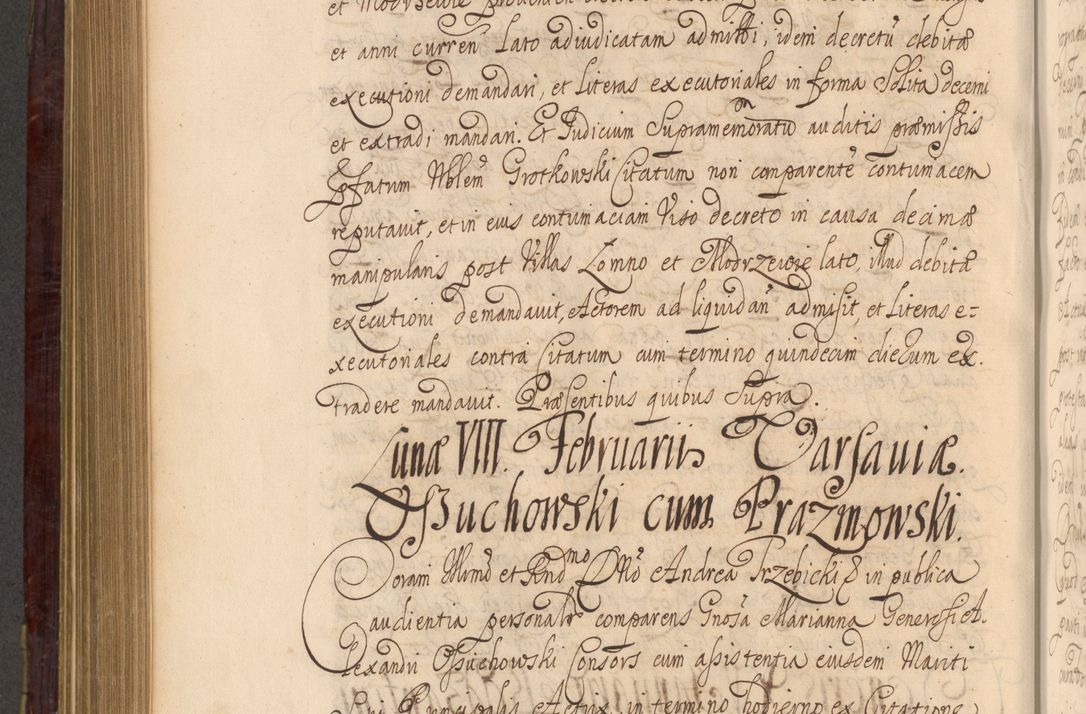 et anni curren̄ lato adiudicatam admitti, idem decretū debitæ
executioni demandari, et literas executoriales in forma solita decerni
et extradi mandari. Et Iudicium Supramemoratū auditis præmissis
Pfatum Nblem Grotkowski Citatum non comparente contumacem
reputauit, et in eius contumaciam Viso decreto in causa decimæ
manipularis post Villas Lomno et Modrzewie lato, illud debitæ
executioni demandauit, Actorem ad liquidan̄ admisit, et literas e=
xecutoriales contra Citatum cum termino quindecim dierum ex
tradere mandauit. Præsentibus quibus supra.
Lunæ VIII. Februarii Varsauiæ.
Ossuchowski cum Prazmowski.
Coram Illmo et Rndmo Dno Andrea Trzebicki & in publica
audientia personalr comparens Gnosa Marianna Generosi A-
lexandri Ossuchowski Consors cum assistentia eiusdem Mariti
sui Principalis Actrix in termino hodierno ex Citatione